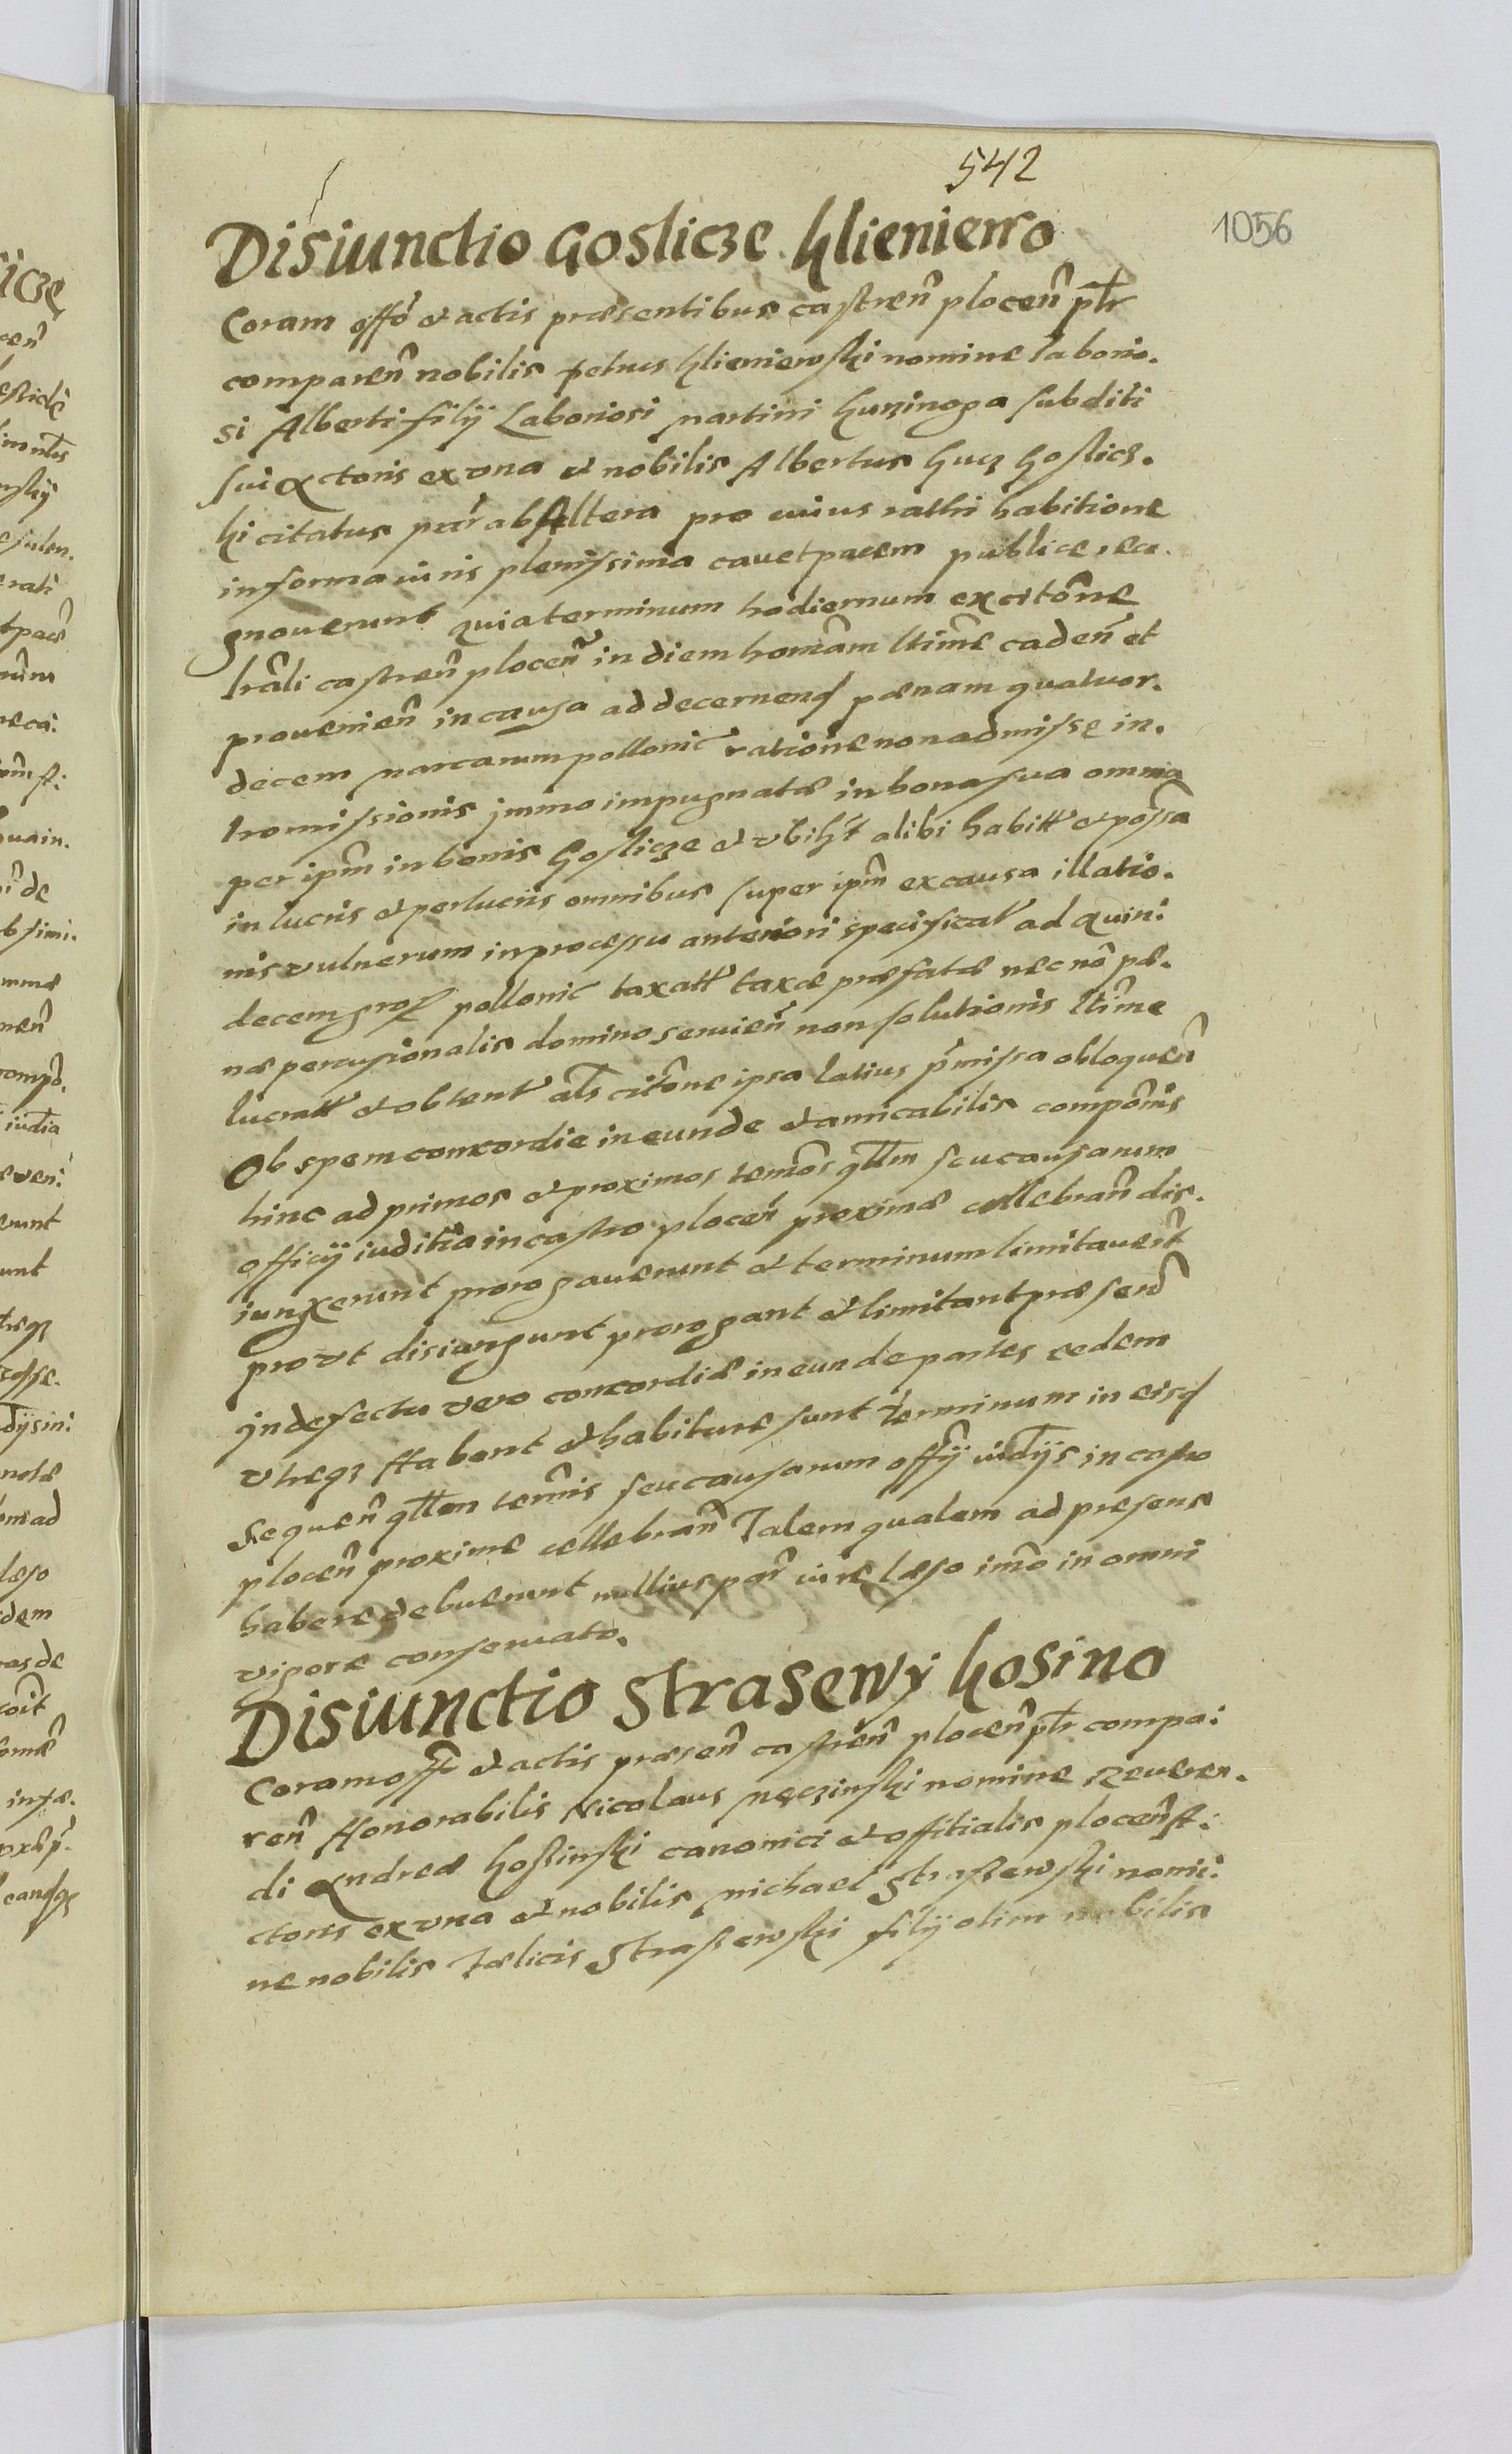 542
1056
Disiunctio Goslicze Hlieniewo
Coram offō et actis præsentibus castreñ ploceñ pltr
compareñ nobilis petrus hlieniewski nomine laborio.
si Alberti filÿ Laboriosi martini hurzinoga subditi
sui Actoris ex una et nobilis Albertus hucz hoslicz.
ki citatus par ab Altera pro cuius rathi habitione
in forma iuris plenissima cauet pacem publice reco.
gnouerunt quia terminum hodiernum ex citōne
lrāli castreñ ploceñ in diem hornām ltime cadeñ et
prouenieñ in causa ad decernend pœnam quatuor.
decem marcarum pollonic ratione non admisse in.
tromissionis jmmo impugnatæ in bona sua omnia
per ipm in bonis Goslicze et ubiht alibi habitt et possa
in lucris et perlucris omnibus super ipm ex causa illatio.
nis vulnerum in processu anteriori specificat ad quin:
decem gross pollonic taxatt taxæ præfatæ nec nō pæ.
næ percusionalis domino seruieñ non solutionis ltime
lucratt et obtent als citōne ipsa latius p̄missa obloqueñ
Ob spem concordie ineunde et amicabilis compōnis
hinc ad primos et proximos termōs qttm seu causarum
officÿ iuditia in castro ploceñ proxime cellebrañ dis.
iunxerunt prorogauerunt et terminum limitauert
prout disiungunt prorogant et limitant præseñ
jn defectu vero concordiæ ineunde partes eedem
utreqz Habent et habiture sunt terminum in eisd
sequeñ qttm termīs seu causarum offÿ iudÿs in castro
ploceñ proxime cellebrañ Talem qualem ad presens
habere debuerunt nullius par iure læso imō in omni
vigore conseruato.
Disiunctio Strasewy hosino
Coram offō et actis præseñ castreñ ploceñ pltr compa:
reñ Honorabilis Nicolaus męczinski nomine Reueren.
di Andreæ hossinski canonici et offitialis ploceñ A:
ctoris ex una et nobilis michael Strasewski nomi:
ne nobilis Fælicis Strasewski filÿ olim nobilis